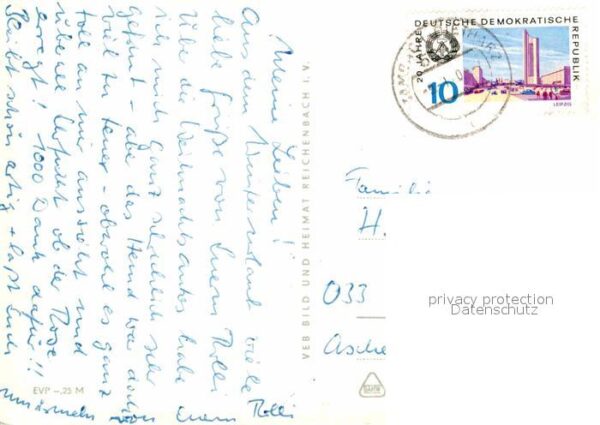 Meine Lieben!
Aus dem Winterurlaub viele
liebe Grüße von Eurem Rolli
Über die Weihnachtskarte habe
ich mich ganz schrecklich sehr
gefreut - aber das Hemd war doch
viel zu teuer - obwohl es ganz
toll an mir aussieht und
überall ob der Rose
erregt! 1000 Dank dafür!!
Bleibt schön artig + laßt Euch
umarmeln von Eurem Rolli
EVP -,25 M
VEB BILD UND HEIMAT REICHENBACH I. V.
20 JAHRE DEUTSCHE DEMOKRATISCHE REPUBLIK
10
LEIPZIG
Familie
H.
033
Asche
privacy protection
Datenschutz